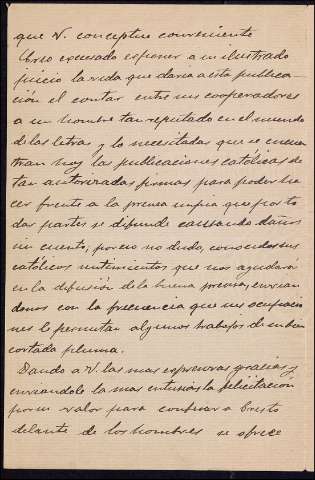 que V. conceptue conveniente
Creo excusado exponer a su ilustrado
juicio la vida que daria a esta publica-
ción el contar entre sus cooperadores
a un hombre tan reputado en el mundo
de las letras y lo necesitadas que se encuen
tran hoy las publicaciones católicas de
tan autorizadas firmas para poder ha
cer frente a la prensa impia que por to
das partes se difunde causando daños
sin cuento; por eso no dudo, conocidos sus
católicos sentimientos que nos ayudará
en la difusión de la buena prensa, envian
donos con la frecuencia que sus ocupacio
nes le permitan algunos trabajos de su bien
cortada pluma.
Dando a V. las mas expresivas gracias y
enviandole la mas entusiasta felicitacion
por su valor para confesar a Cristo
delante de los hombres se ofrece